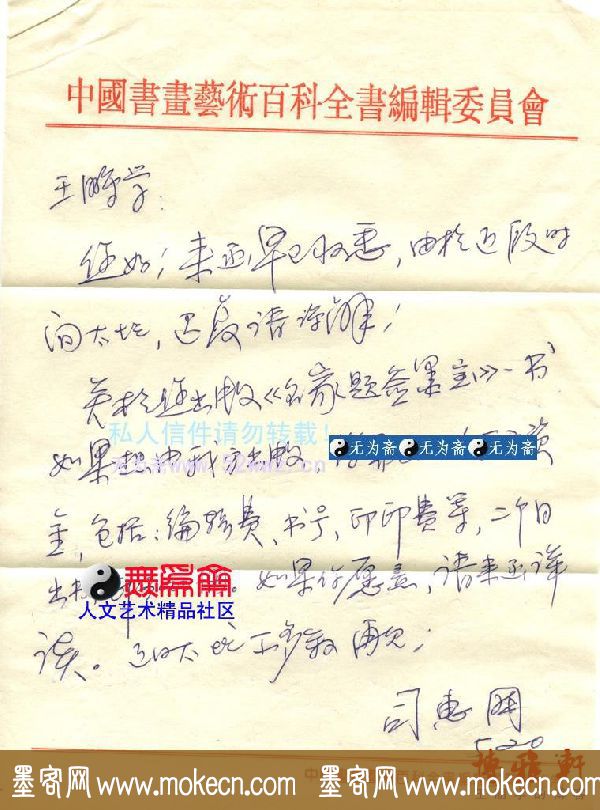 中國書畫藝術百科全書編輯委員會
王
您好！来函早已收悉，由於近段时
间太忙，迟复请谅解！
关於您出版《名家题签墨宝》一书
私人信件请勿转载！
如果想由我方出版
无为斋 无为斋 无为斋
金，包括：编辑费、书号、印印费等，二个月
出 。如果你愿意，请来函详
無爲齋
人文艺术精品社区
谈。近日太忙 不多叙 再见！
司惠国
5.20
墨客网 www.mokecn.com 墨客网 www.mokecn.com